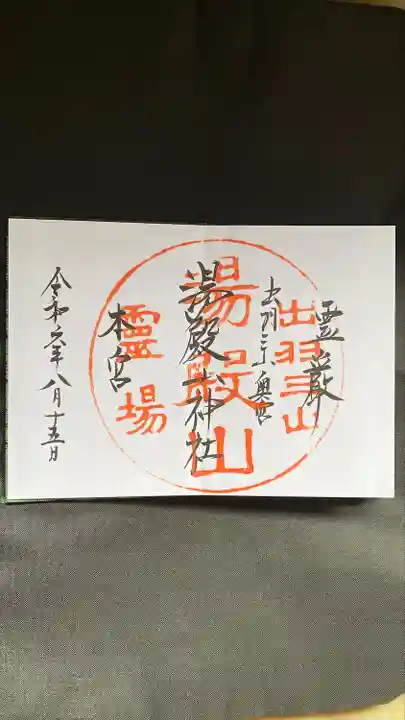 霊巌
出羽三山奥宮
湯殿山神社
本宮
令和六年八月十五日
出羽三山
湯殿山
霊場